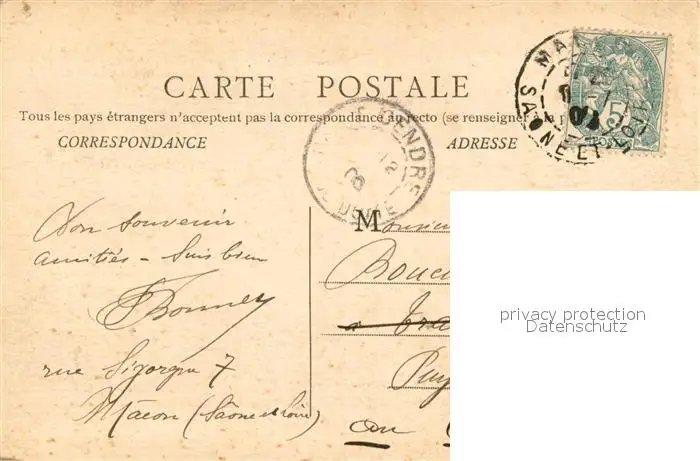 CARTE POSTALE
Tous les pays étrangers n'acceptent pas la correspondance au recto (se renseigner à la po
CORRESPONDANCE
ADRESSE
Bon souvenir
amitiés - suis bien
Bonnet
rue Sigorgne 7
Mâcon (Saône et Loire)
Monsieur
Bouc
a Tra
Puy
au
MAC
SAONE ET
5
ENDRE
privacy protection
Datenschutz